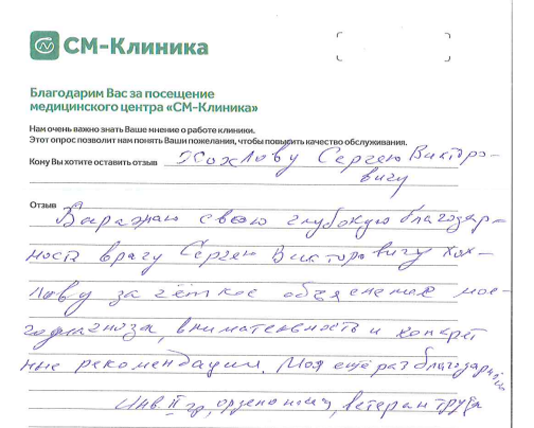 СМ-Клиника
Благодарим Вас за посещение
медицинского центра «СМ-Клиника»
Нам очень важно знать Ваше мнение о работе клиники.
Этот опрос позволит нам понять Ваши пожелания, чтобы повысить качество обслуживания.
Кому Вы хотите оставить отзыв Хохлову Сергею Викторо-
вичу
Отзыв
Выражаю свою глубокую благодар-
ность врачу Сергею Викторовичу Хох-
лову за чёткое объяснение мое-
го диагноза, внимательность и конкрет
ные рекомендации. Моя ещё раз благодарность
Инв. II гр, орденоносец, ветеран труда